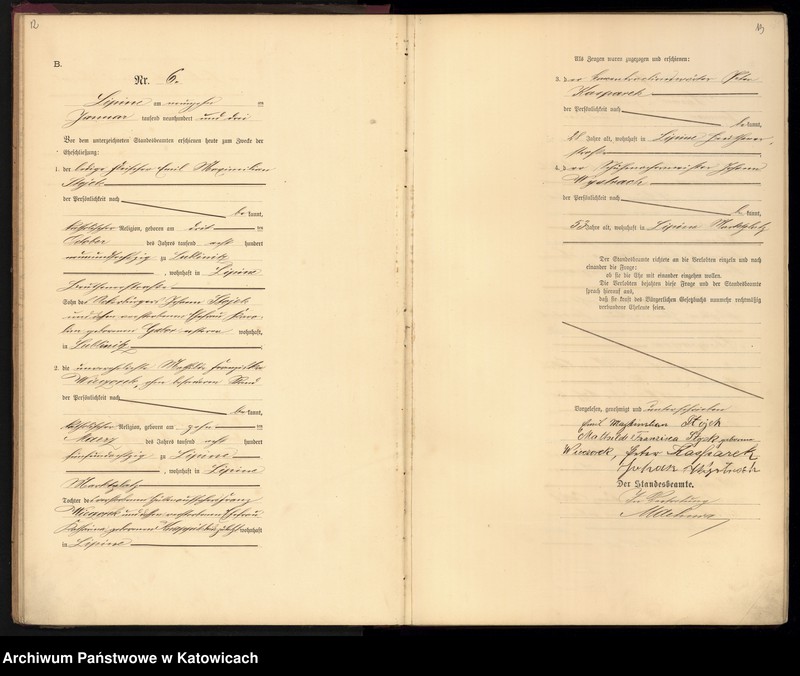 12
B.
Nr. 6.
Lipine am neunzehn ten
Januar tausend neunhundert und drei
Vor dem unterzeichneten Standesbeamten erschienen heute zum Zwecke der
Eheschließung:
1. der ledige Fleischer Emil Maximilian
der Persönlichkeit nach
be kannt,
katholischer Religion, geboren am dritten
October des Jahres tausend acht hundert
neunundsiebzig zu Lublinitz
, wohnhaft in Lipine
Beuthenerstraße
Sohn des Ackerbürgers Johann
und dessen verstorbenen Ehefrau
geborenen wohnhaft,
in Lublinitz
2. die unverehelichte Mathilde Franziska
Wieczorek, ohne besonderen Stand
der Persönlichkeit nach
be kannt,
katholischer Religion, geboren am zehnten
Maerz des Jahres tausend acht hundert
fünfundachtzig zu Lipine
, wohnhaft in Lipine
Marktplatz
Tochter des verstorbenen Franz
Wieczorek und dessen verstorbenen Ehefrau
geborenen zuletzt wohnhaft
in Lipine
Als Zeugen waren zugezogen und erschienen:
3. der Peter
Kasparek
der Persönlichkeit nach
be kannt,
Jahre alt, wohnhaft in Lipine Beuthener-
straße
4. der Schuhmachermeister Johann
der Persönlichkeit nach
be kannt,
53 Jahre alt, wohnhaft in Lipine Marktplatz
Der Standesbeamte richtete an die Verlobten einzeln und nach
einander die Frage:
ob sie die Ehe mit einander eingehen wollen.
Die Verlobten bejahten diese Frage und der Standesbeamte
sprach hierauf aus,
daß sie kraft des Bürgerlichen Gesetzbuchs nunmehr rechtmäßig
verbundene Eheleute seien.
Vorgelesen, genehmigt und unterschrieben
Emil Maximilian
Francisca geborene
Wieczorek, Peter Kasparek
Johann
Der Standesbeamte.
In Vertretung
Archiwum Państwowe w Katowicach